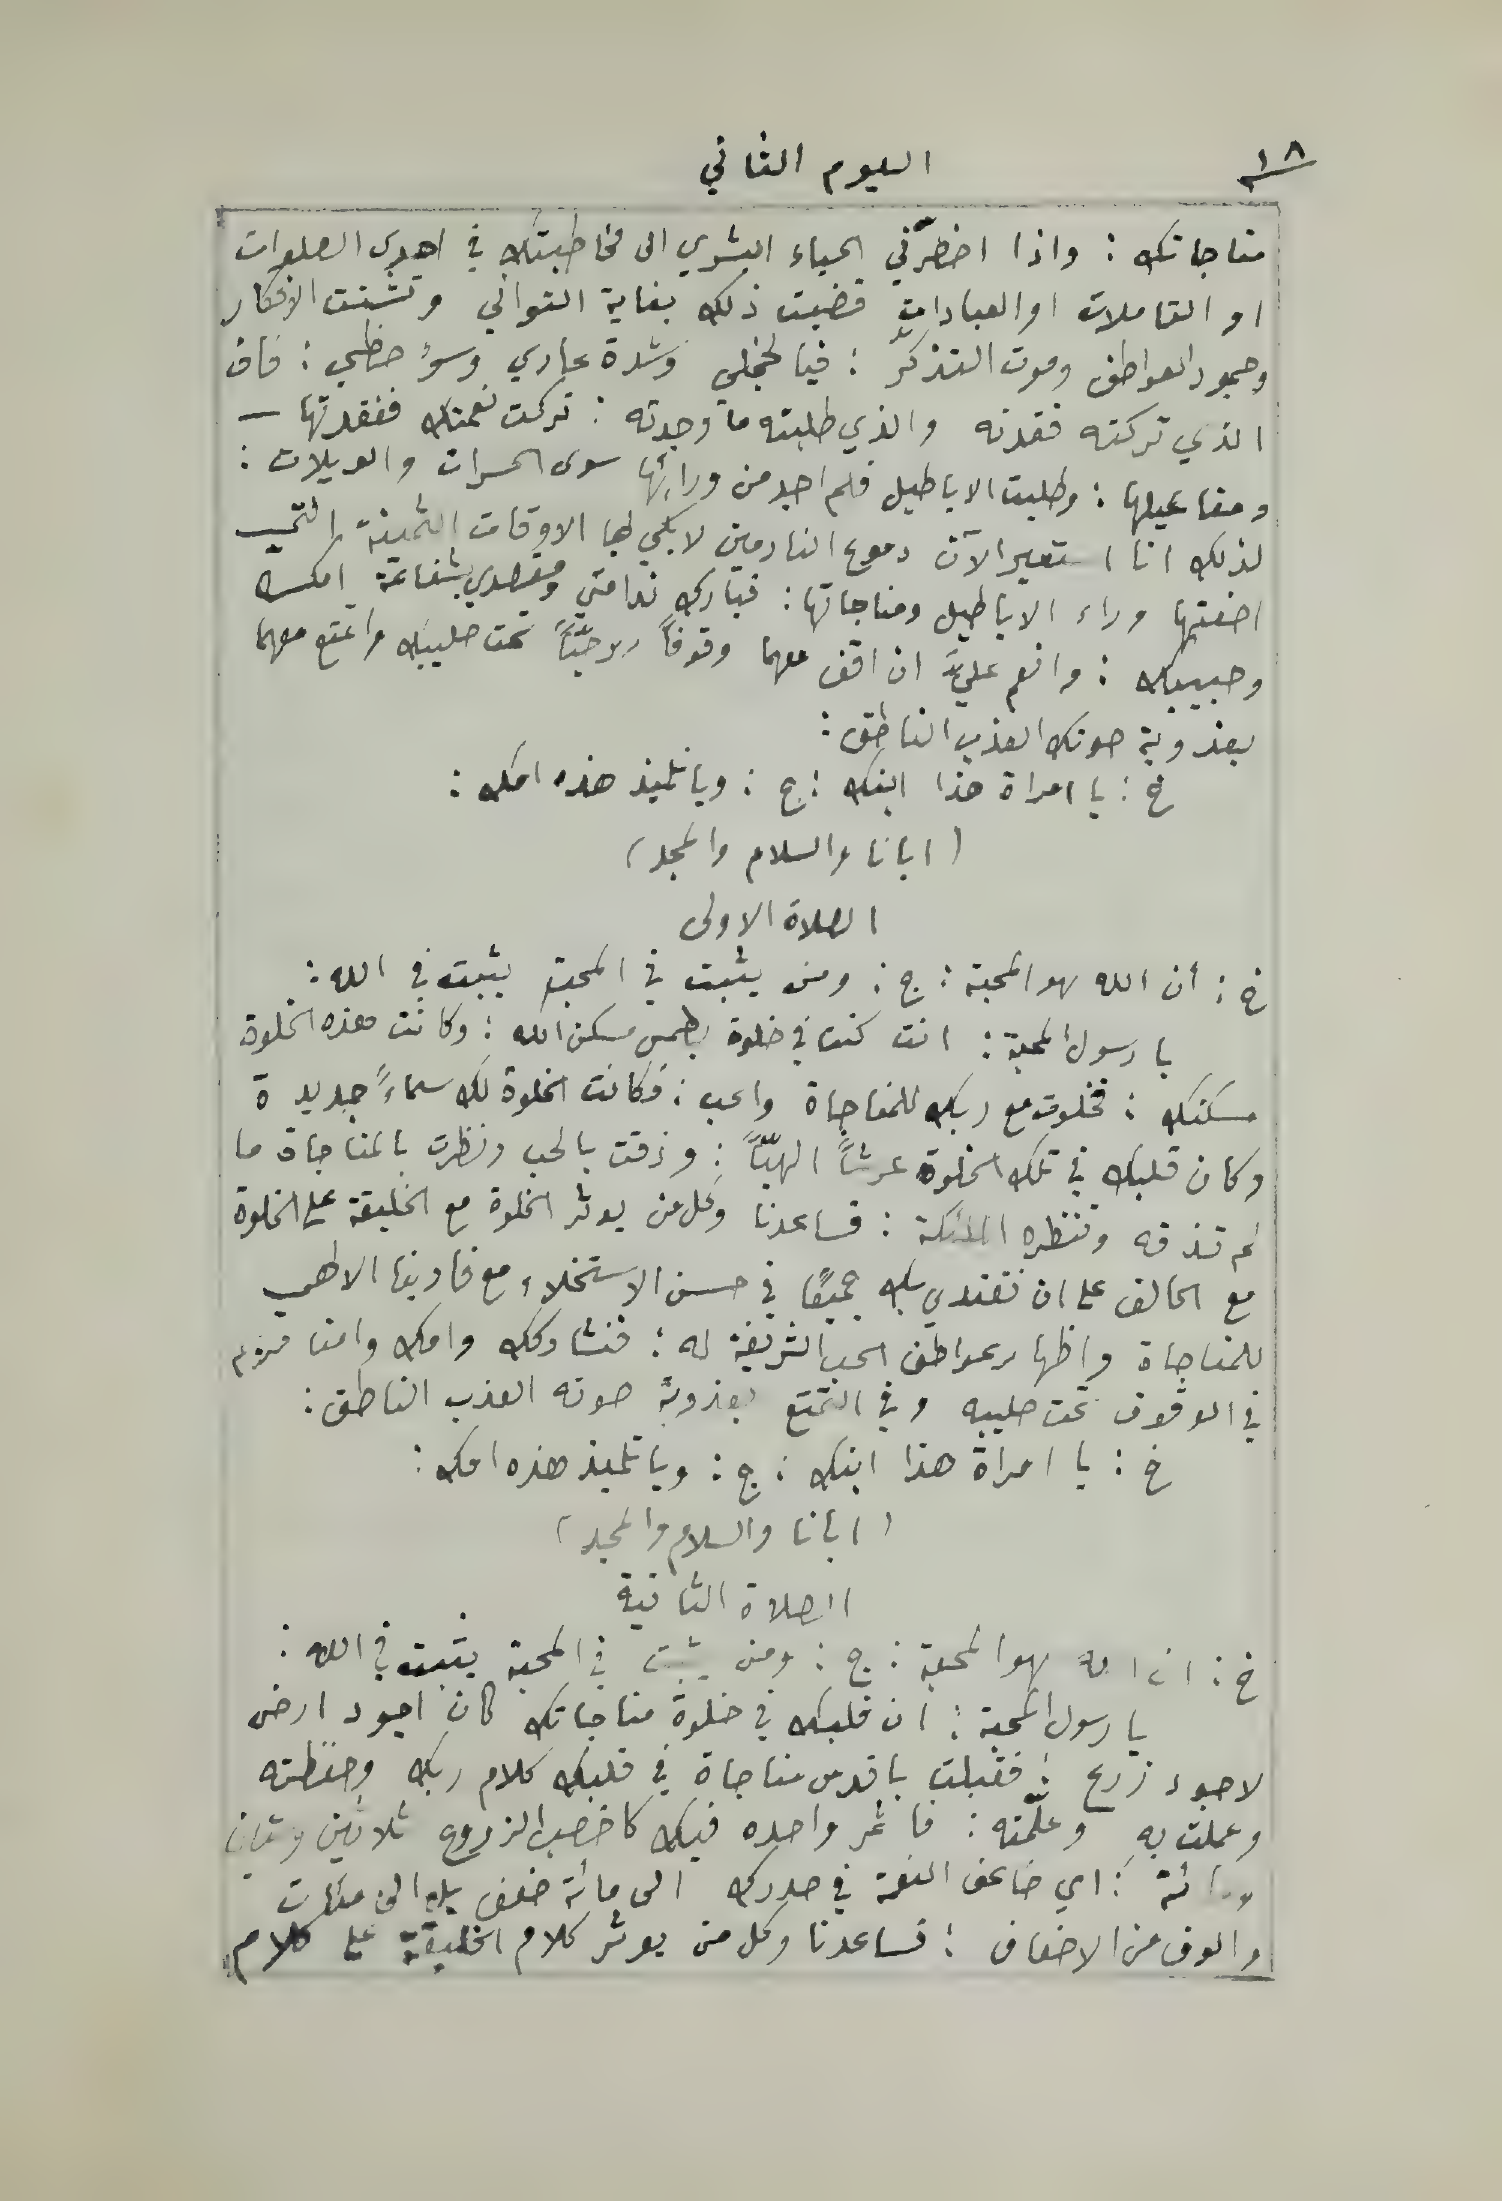 ١٨
اليوم الثاني
مناجاتك : واذا اضطرّني الحياء البشري الى مخاطبتك في احدى الصلوات
او التاملات او العبادات قضيت ذلك بغاية التواني وتشتت الافكار
وجمود العواطف وموت التذكّر : فيالخجلي وشدة عاري وسؤ حظي : فان
الذي تركته فقدته والذي طلبته ما وجدته : تركت نعمتك ففقدتها —
ومفاعيلها : وطلبت الاباطيل فلم اجد من ورائها سوى الحسرات والويلات :
لذلك انا استعير الآن دموع النادمين لابكي بها الاوقات الثمينة التي
اضعتها وراء الاباطيل ومناجاتها : فبارك ندامتي ومقصدي بشفاعة امك
وحبيبك : وانعم عليَّ ان اقف معهما وقوفاً روحيّاً تحت صليبك واتمتع معهما
بعذوبة صوتك العذب الناطق :
خ : يا امراة هذا ابنك : ج : ويا تلميذ هذه امك :
( ابانا والسلام والمجد )
الصلاة الاولى
خ : أن الله هو المحبة : ج : ومن يثبت في المحبة يثبت في الله :
يا رسول المحبة : انت كنت في خلوة بطمس مسكن الله : وكانت هذه الخلوة
مسكنك : فخلوت مع ربك للمناجاة والحب : فكانت الخلوة لك سماءً جديدة
وكان قلبك في تلك الخلوة عرشاً الهيّاً : وذقت بالحب ونظرت بالمناجاة ما
لم تذقه وتنظره الملئكة : فساعدنا وكل من يوثر الخلوة مع الخليقة على الخلوة
مع الخالق على ان نقتدي بك جميعًا في حسن الاستخلاء مع فادينا الالهي
للمناجاة واظهار عواطف الحب الشريفة له : فنشاركك وامك وامنا مريم
في الوقوف تحت صليبه وفي التمتع بعذوبة صوته العذب الناطق :
خ : يا امراة هذا ابنك : ج : ويا تلميذ هذه امك :
( ابانا والسلام والمجد )
الصلاة الثانية
خ : ان الله هو المحبة : ج : ومن يثبت في المحبة يثبت في الله :
يا رسول المحبة : ان قلبك في خلوة مناجاتك كان اجود ارض
لاجود زرع : فقبلت باقدس مناجاة في قلبك كلام ربك وحفظته
وعملت به وعلّمته : فاثمر واحده فيك كاخصب الزروع ثلاثين وستين
ومائة : اي ضاعف النعمة في صدرك الى مائة ضعف بل الى مئات
والوف من الاضعاف : فساعدنا وكل من يوثر كلام الخليقة على كلام